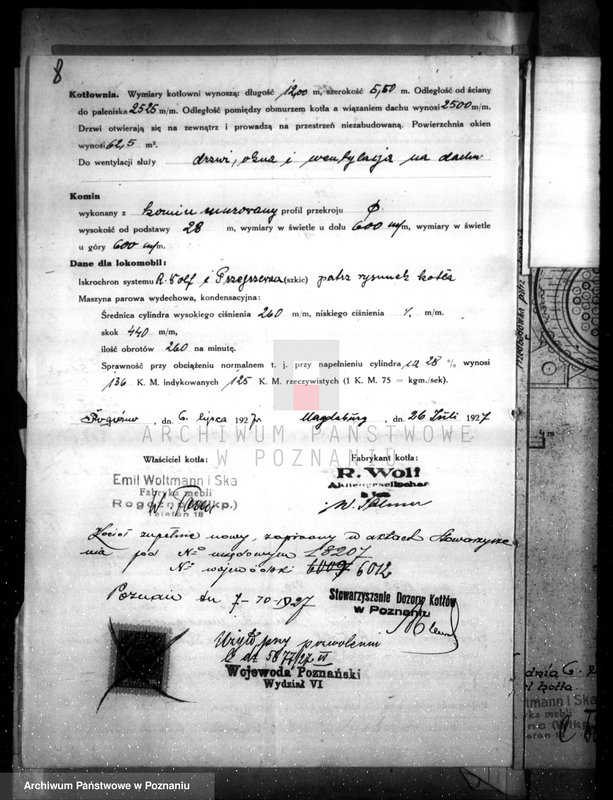 8
Kotłownia. Wymiary kotłowni wynoszą: długość 12,00 m, szerokość 5,50 m. Odległość od ściany
do paleniska 2525 m/m. Odległość pomiędzy obmurzem kotła a wiązaniem dachu wynosi 2500 m/m.
Drzwi otwierają się na zewnątrz i prowadzą na przestrzeń niezabudowaną. Powierzchnia okien
wynosi 62,5 m².
Do wentylacji służy drzwi, okna i wentylacja na dachu
Komin
wykonany z komin murowany profil przekroju
wysokość od podstawy 28 m, wymiary w świetle u dołu 600 m/m, wymiary w świetle
u góry 600 m/m.
Dane dla lokomobil:
Iskrochron systemu R. Wolf i Przegrzewacz (szkic) patrz rysunek kotła
Maszyna parowa wydechowa, kondensacyjna:
Średnica cylindra wysokiego ciśnienia 260 m/m, niskiego ciśnienia m/m.
skok 440 m/m,
ilość obrotów 260 na minutę.
Sprawność przy obciążeniu normalnem t. j. przy napełnieniu cylindra ca 28 % wynosi
136 K. M. indykowanych 125 K. M. rzeczywistych (1 K. M. 75 = kgm./sek).
Rogoźno, dn. 6. lipca 1927 r. Magdeburg, dn. 26 Juli 1927
ARCHIWUM PAŃSTWOWE
W POZNANIU
Właściciel kotła: Fabrykant kotła:
Emil Woltmann i Ska R. Wolf
Fabryka mebli Aktiengesellschaft
Rogoźno (Wlkp.)
Telefon 18
Kocioł zupełnie nowy, zapisany w aktach Stowarzysze
nia pod No urzędowym 18207
No wojewódzki 6009 6012
Poznań dn 7-10-1927 Stowarzyszenie Dozoru Kotłów
w Poznaniu
Użyto przy pozwoleniu
Wojewoda Poznański
Wydział VI
Archiwum Państwowe w Poznaniu